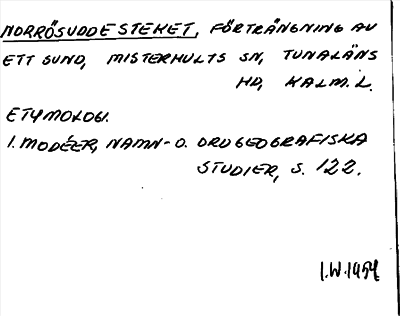 NORRÖSUDDESTEKET, FÖRTRÄNGNING AV
ETT SUND, MISTERHULTS SN, TUNALÄNS
HD, KALM. L.
ETYMOLOGI.
I. MODÉER, NAMN- O. ORDGEOGRAFISKA
STUDIER, S. 122.
I.W. 1994